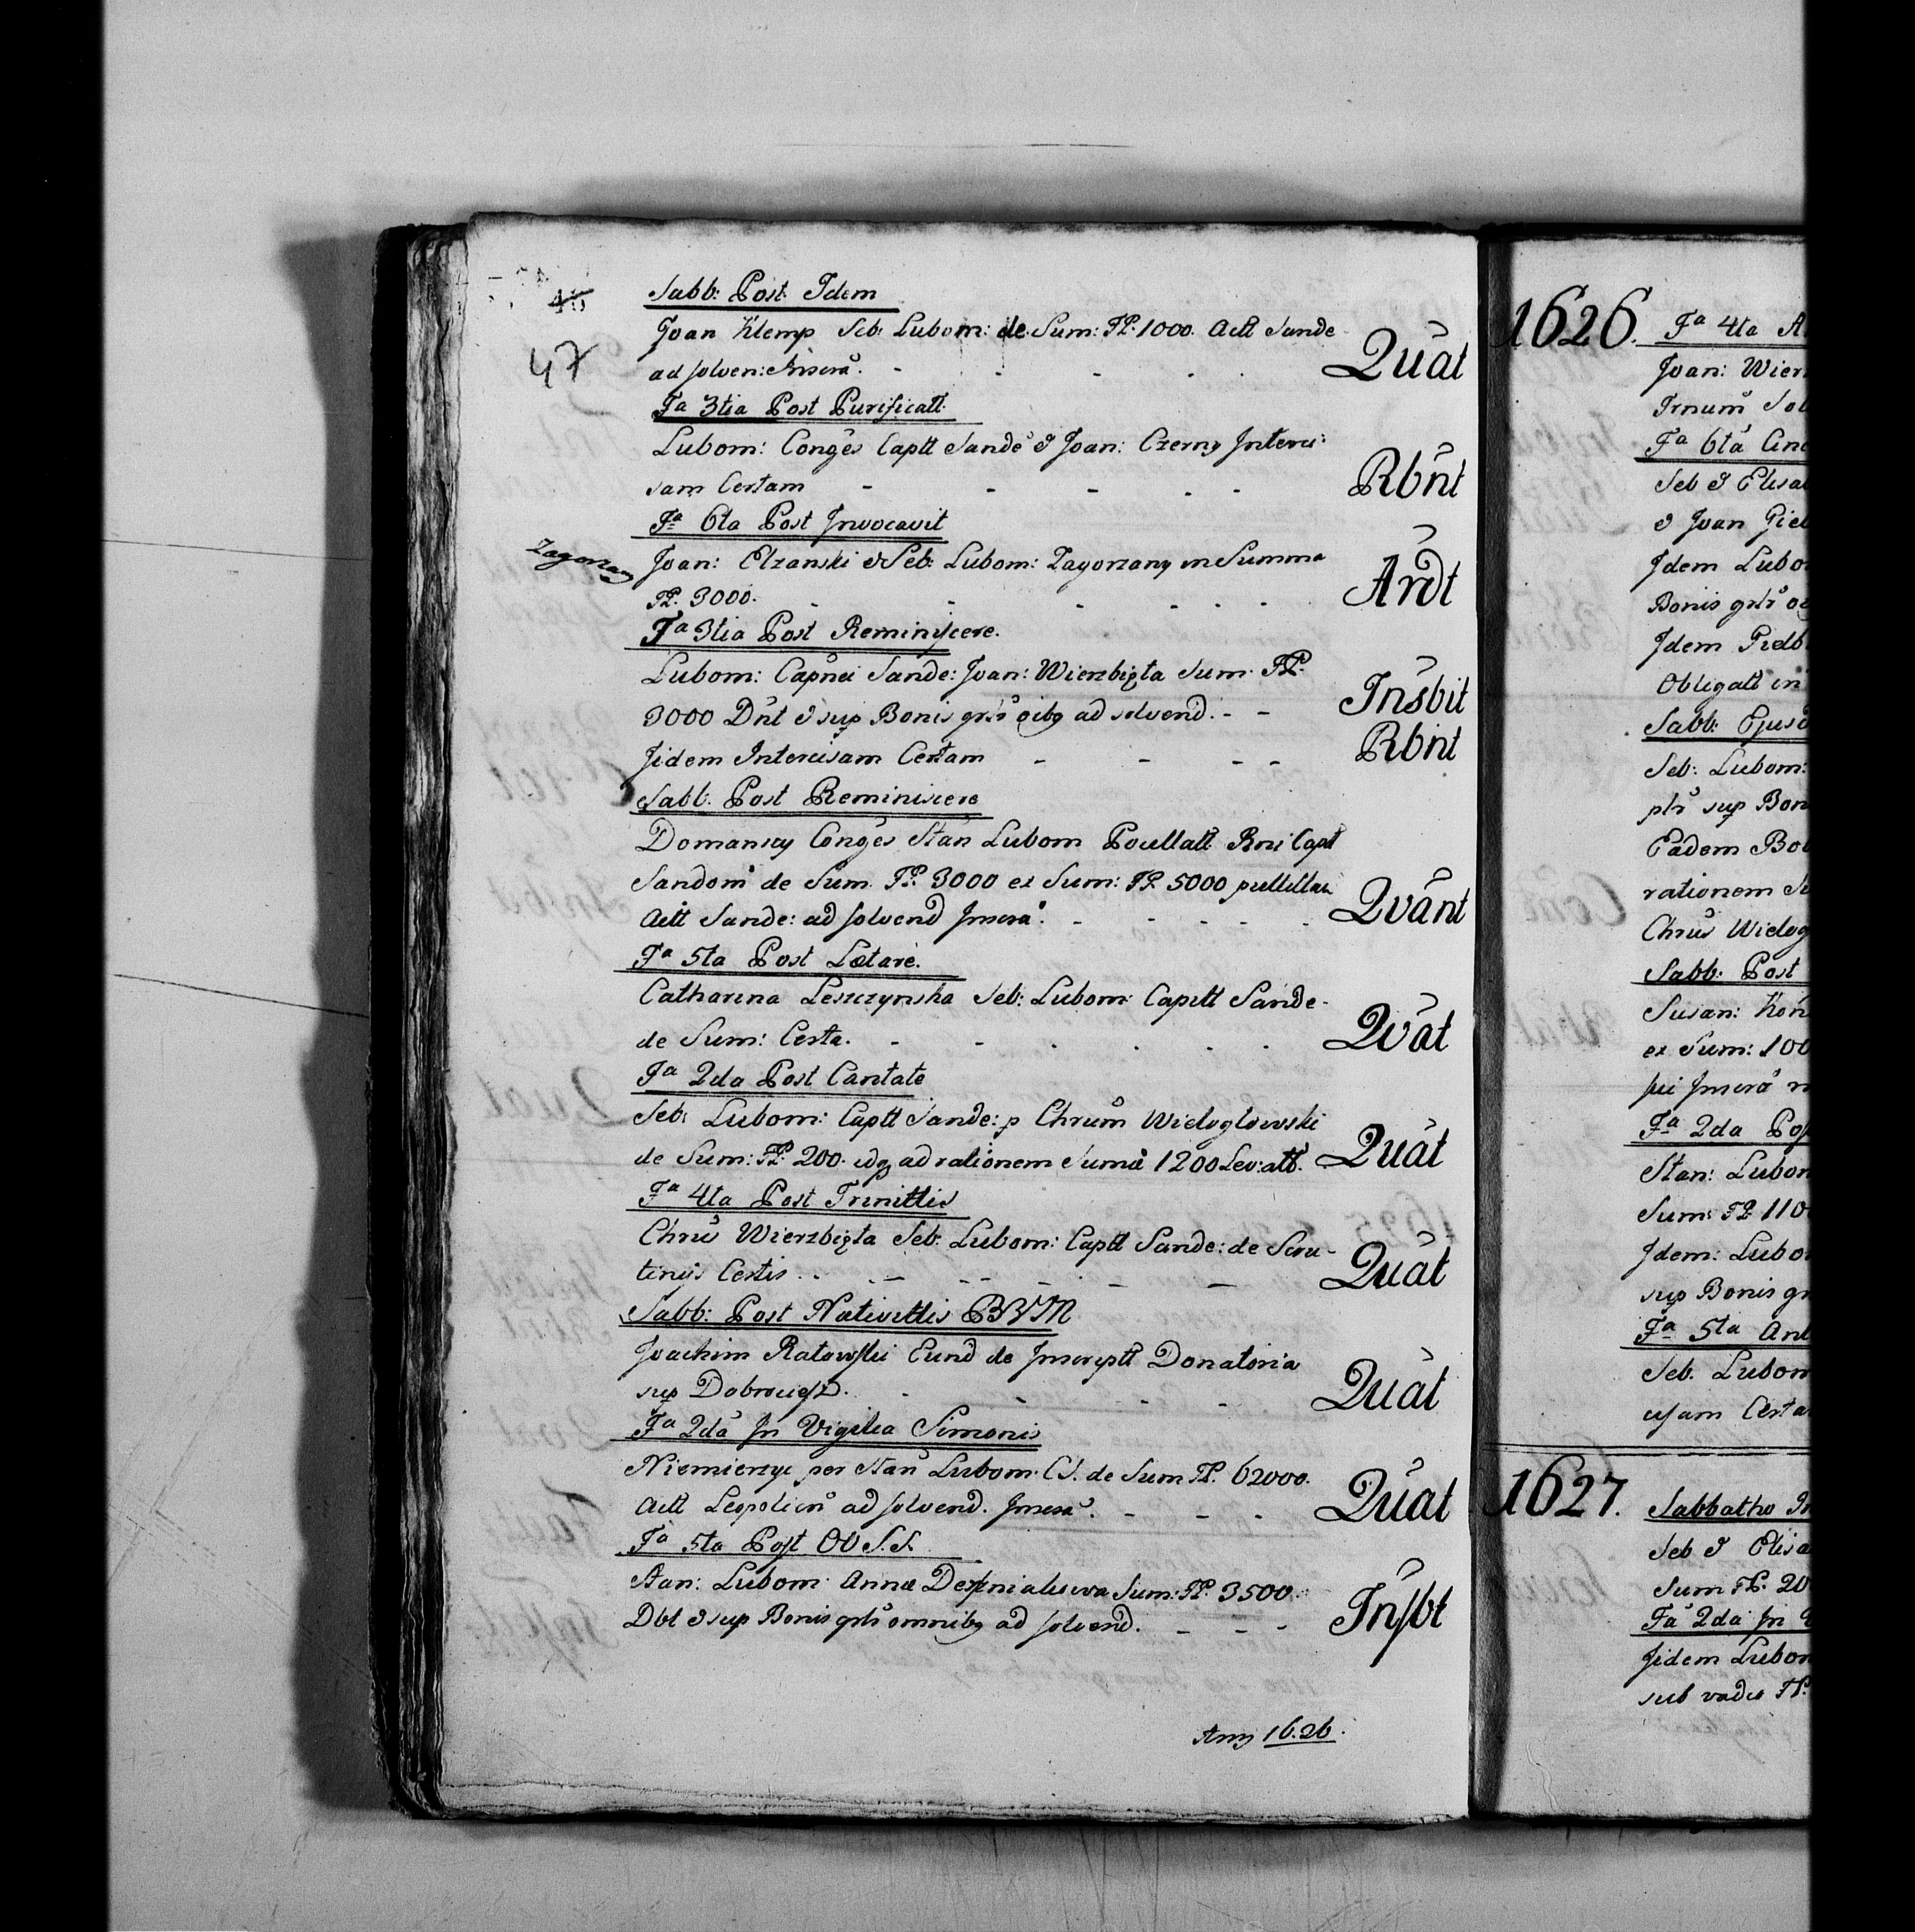 46
47
Sabb: Post Idem
Joan Klemp Seb: Lubom: de Sum: FP. 1000. Actt Sande
ad solven: Inscra. Quat
Fa 3tia Post Purificatt.
Lubom: Conges Captt Sande & Joan: Czerny Interci:
sam Certam Rbnt
Fa 6ta Post Invocavit
Zagorzan
Joan: Elzanski & Seb: Lubom: Zagorzany in Summa
FP. 3000. Ardt
Fa 3tia Post Reminiscere.
Lubom: Capnei Sande: Joan: Wierzbięta Sum. FP.
3000 Dnt & sup Bonis grlr oibq ad solvend. Insbit
Jidem Intercisam Certam Rbnt
Sabb. Post Reminiscere
Domanscy Conges Stan Lubom Pocullatt Rni Captt
Sandom de Sum. FP. 3000 ex Sum: FP. 5000
Actt Sande: ad solvend Inscra. Qvant
Fa 5ta Post Lætare.
Catharina Leszczynska Seb: Lubom: Capitt Sande
de Sum: Certa. Qvat
Fa 2da Post Cantate
Seb: Lubom: Captt Sande: p Chrum Wielogłowski
de Sum: FP. 200. idq ad rationem Sumæ 1200 Lev: att. Quat
Fa 4ta Post Trinittis
Chrus Wierzbięta Seb: Lubom: Captt Sande: de Scru-
tiniis Certis. Quat
Sabb: Post Nativittis BVM
Joachim Ratowski Eund de Inscriptt Donatoria
sup Dobrociesz. Quat
Fa 2da In Vigilia Simonis
Niemierzyc per Stan Lubom. CS. de Sum FP. 62000.
Actt Leopolien ad solvend. Inscra. Quat
Fa 5ta Post OO S.S.
Stan: Lubom: Annæ Sum: FP. 3500.
Dbt & sup Bonis grlr omnibq ad solvend. Insbt
Anq 1626.
1626. Fa 4ta A
Joan: Wier
Trnum Sol
Fa 6ta
Seb & Elisa
& Joan Gieł
Idem Lubo
Bonis grlr
Idem
Obligatt in
Sabb: Ejusd
Seb: Lubom:
plr sup Bon
Eadem
rationem
Chrus Wielog
Sabb: Post
Susan: Kon
ex Sum: 100
Inscra
Fa 2da Pos
Stan: Lubom
Sum: FP. 110
Idem: Lubo
sup Bonis gr
Fa 5ta Ant
Seb. Lubom
cisam Certa
1627. Sabbatho In
Seb & Elisa
Sum FP. 20
Fa 2da In
Jidem Lubom
sub vadio FP.